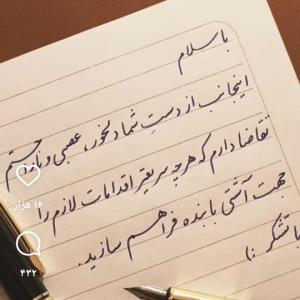 با سلام
اینجانب از دست شما دلخور، عصبی و ناراحتم
تقاضا دارم که هرچه سریعتر اقدامات لازم را
جهت آشتی با بنده فراهم سازید.
با تشکر :)
۱۶ هزار
۴۳۲